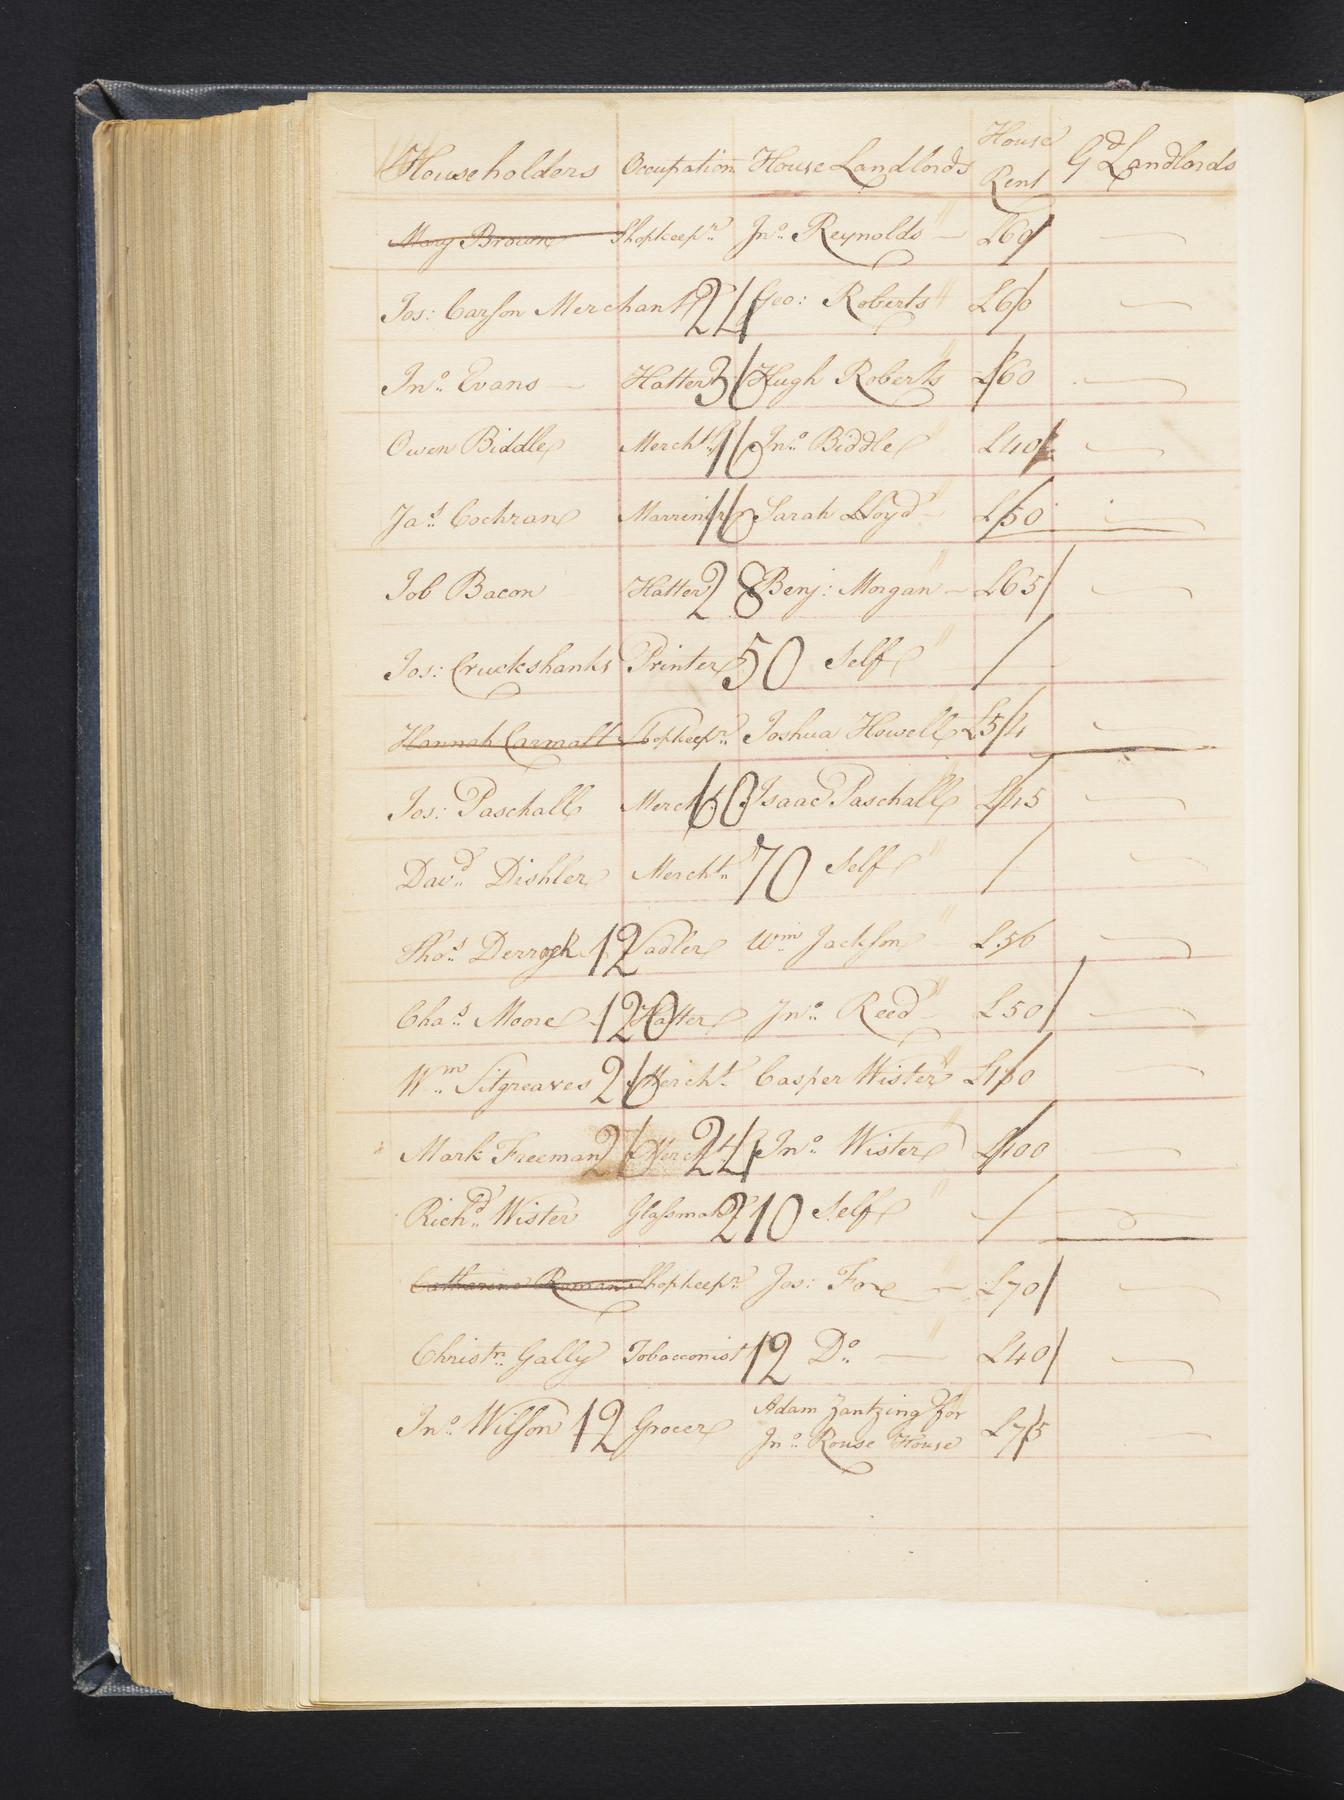 Householders Occupation House Landlords House Rent Gd Landlords
Mary Brown Shopkeepr Jno. Reynolds £60
Jos: Carson Merchant 24 Geo: Roberts £60
Jno. Evans Hatter 36 Hugh Roberts £60
Owen Biddle Mercht 16 Jno. Biddle £40
Jas. Cochran Marriner 16 Sarah Lloyd £50
Job Bacon Hatter 28 Benj: Morgan £65
Jos: Cruckshanks Printer 50 Self
Hannah Carmalt Shopkeepr Joshua Howell £54
Jos: Paschall Mercht 60 Isaac Paschall £45
Davd. Dishler Mercht 70 Self
Thos. Derrock 12 Sadler Wm Jackson £56
Chas. Moore 120 Hatter Jno. Reed £50
Wm. Sitgreaves 26 Mercht Casper Wister
Mark Freeman 26 Mercht 24 Jno. Wister £100
Richd. Wister Glassmakr 210 Self
Catharine Roman Shopkeepr Jos: Fox £70
Christn. Gally Tobacconist 12 Do. £40
Jno. Wilson 12 Grocer Adam Zantzing for £75
Jno. Rouse House